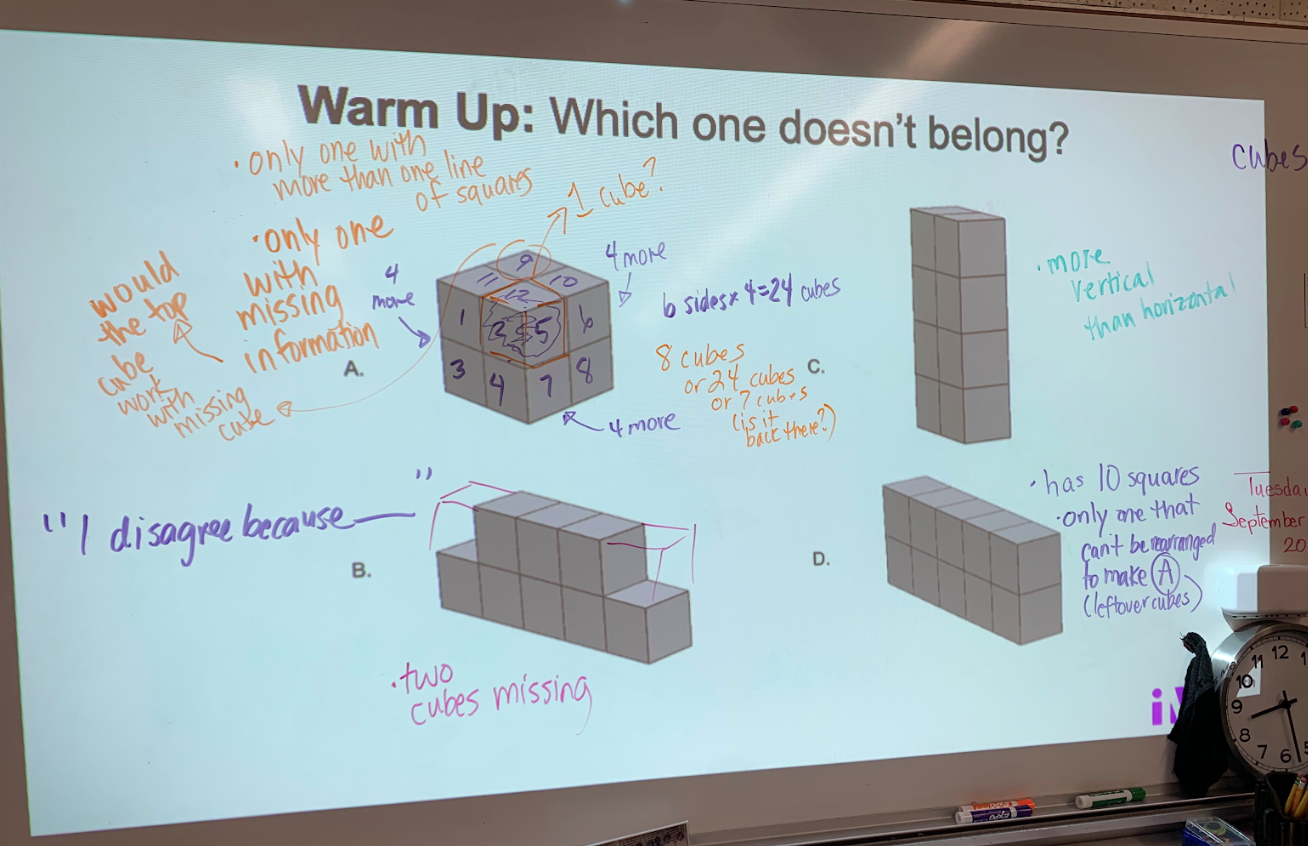 Warm Up: Which one doesn't belong?
cubes
• only one with
more than one line
of squares
1 cube?
• only one
with
missing
information
would
the top
cube
work
with
missing
cube
4
more
4 more
6 sides × 4 = 24 cubes
8 cubes
or 24 cubes
or 7 cubes
(is it
back there?)
4 more
A.
9
11
10
12
1
2
5
6
3
4
7
8
C.
• more
vertical
than horizontal
"I disagree because ——"
B.
• two
cubes missing
D.
• has 10 squares
• only one that
can't be rearranged
to make A
(leftover cubes)
Tuesda
September
20
11
12
1
10
9
8
7
6
5